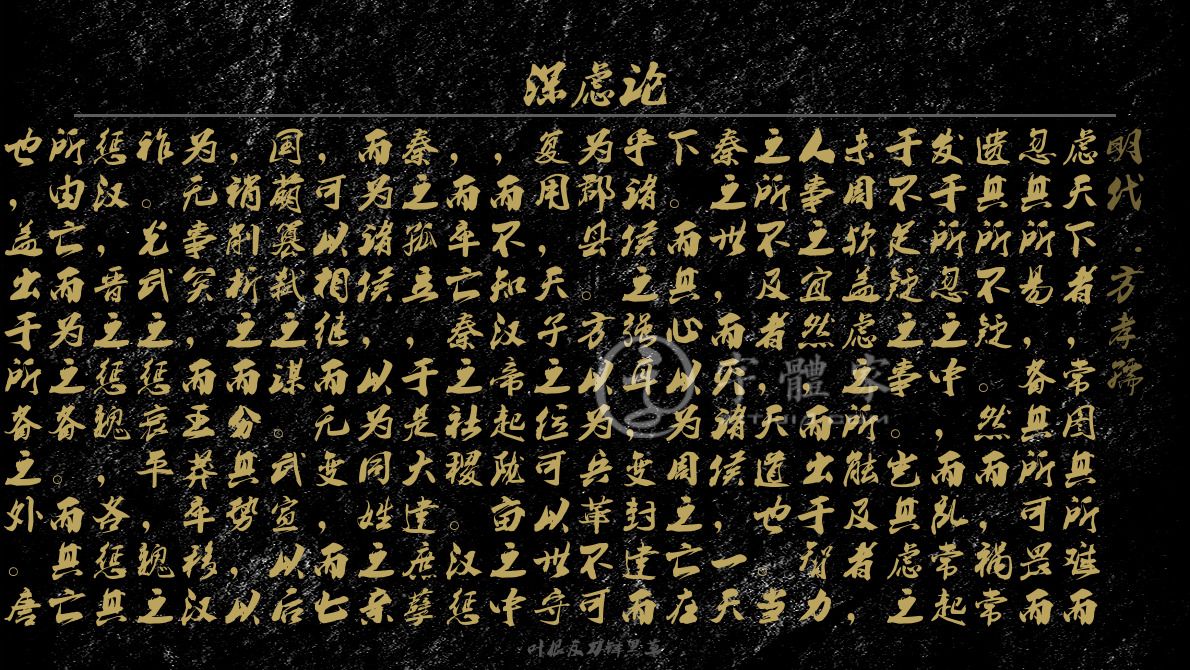 深虑论
明代·方孝孺
虑天下者，常图其所难而
忽其所易，备其所可畏而
遗其所不疑。然而祸常
发于所忽之中，而乱常起
于不足疑之事。岂其虑之
未周欤盖虑之所能及者，
人事之宜然，而出于智力
之所不及者，天道也。当
秦之世，而灭诸侯，一天
下。而其心以为周之亡在
乎诸侯之强耳，变封建而
为郡县。方以为兵革不可
复用，天子之位可以世守
，而不知汉帝起陇亩之中
，而卒亡秦之社稷。汉惩
秦之孤立，于是大建庶孽
而为诸侯，以为同姓之亲
，可以相继而无变，而七
国萌篡弑之谋。武宣以后
，稍削析之而分其势，以
为无事矣，而王莽卒移汉
祚。光武之惩哀平，魏之
惩汉，晋之惩魏，各惩其
所由亡而为之备。而其亡
也，盖出于所备之外。唐
字體客
叶根友刀锋黑草